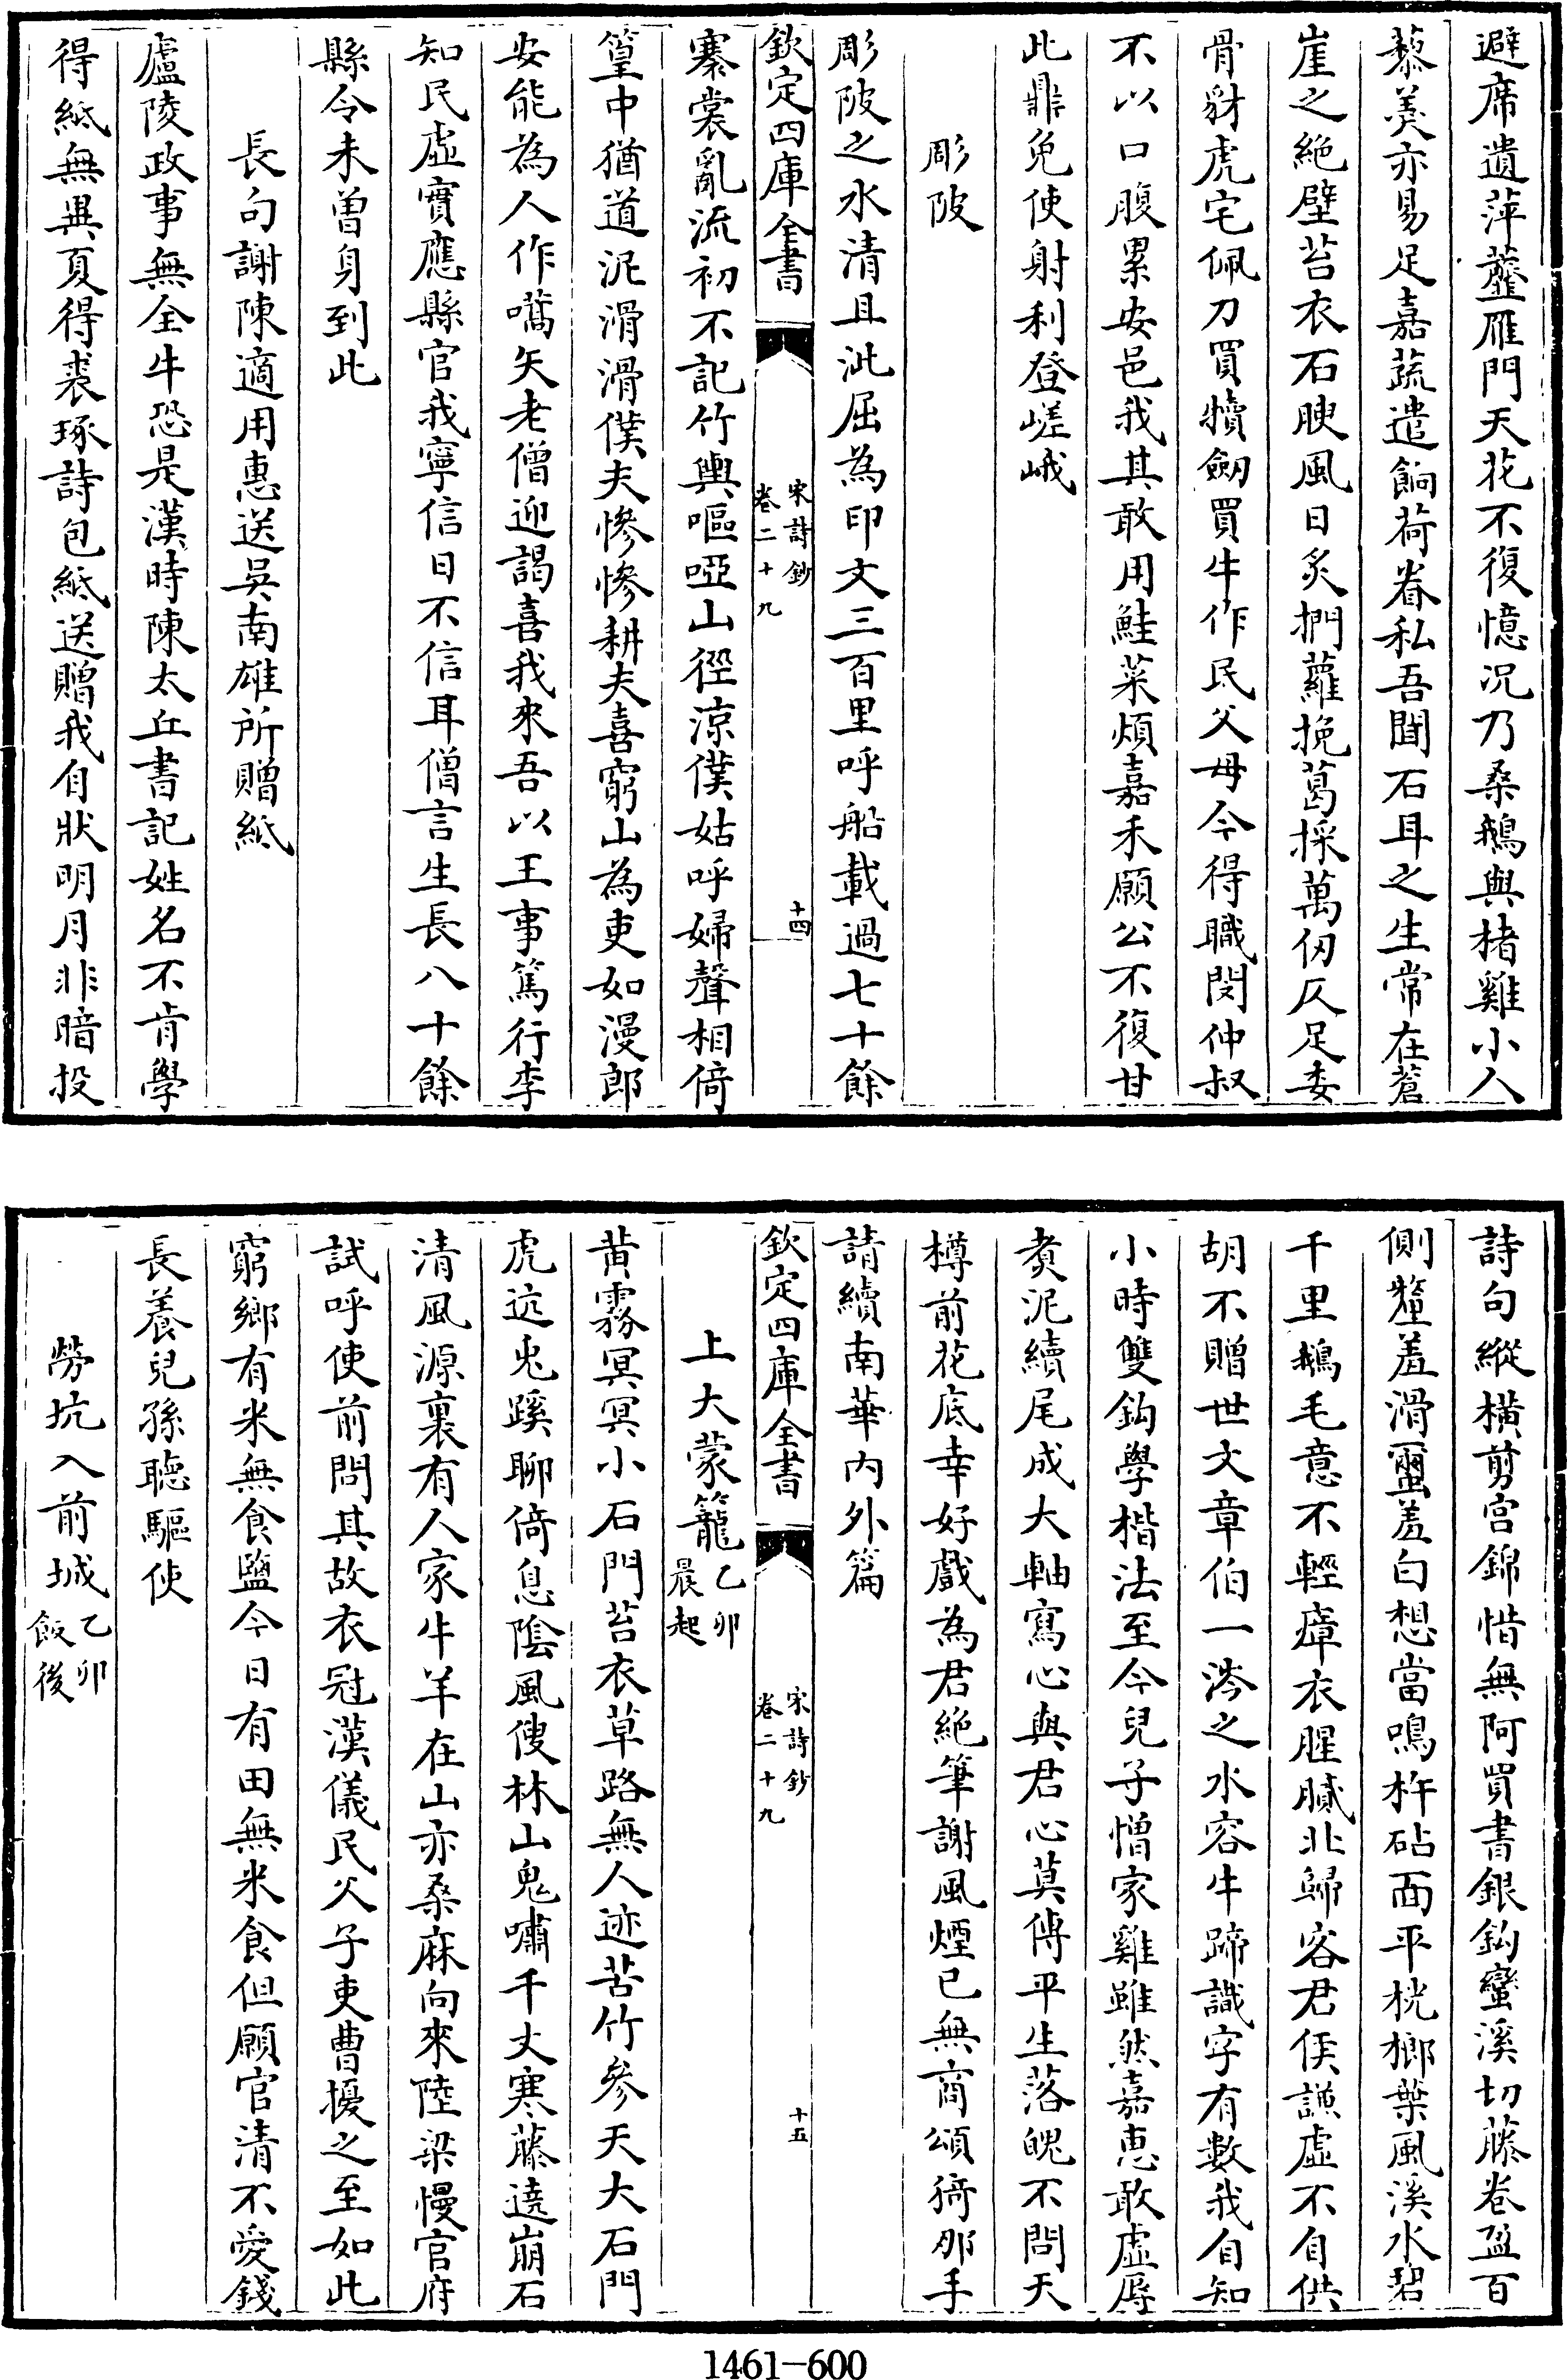 避席遺萍虀雁門天花不復憶况乃桑鵝與楮雞小人
藜羮亦易足嘉蔬遣餉荷眷私吾聞石耳之生常在蒼
崖之絶壁苔衣石腴風日炙捫蘿挽葛採萬仞仄足委
骨豺虎宅佩刀買犢劒買牛作民父母今得職閔仲叔
不以口腹累安邑我其敢用鮭菜煩嘉禾願公不復甘
此鼎免使射利登嵯峨
彫陂
彫陂之水清且泚屈為印文三百里呼船載過七十餘
欽定四庫全書
宋詩鈔
卷二十九
十四
褰裳亂流初不記竹輿嘔啞山徑涼僕姑呼婦聲相倚
篁中猶道泥滑滑僕夫慘慘耕夫喜窮山為吏如漫郎
安能為人作嚆矢老僧迎謁喜我來吾以王事篤行李
知民虛實應縣官我寧信目不信耳僧言生長八十餘
縣令未曾身到此
長句謝陳適用惠送吳南雄所贈紙
廬陵政事無全牛恐是漢時陳太丘書記姓名不肯學
得紙無異夏得裘琢詩包紙送贈我自狀明月非暗投
詩句縱横剪宫錦惜無阿買書銀鈎蠻溪切藤卷盈百
側釐羞滑璽羞白想當鳴杵砧面平桄榔葉風溪水碧
千里鵝毛意不輕瘴衣腥膩北歸客君侯謙虛不自供
胡不贈世文章伯一涔之水容牛蹄識字有數我自知
小時雙鈎學楷法至今兒子憎家雞雖然嘉惠敢虛辱
煑泥續尾成大軸寫心與君心莫傳平生落魄不問天
樽前花底幸好戲為君絶筆謝風煙已無商頌猗那手
請續南華内外篇
欽定四庫全書
宋詩鈔
卷二十九
十五
上大蒙籠乙卯晨起
黄霧冥冥小石門苔衣草路無人迹苦竹參天大石門
虎迒兎蹊聊倚息陰風傻林山鬼嘯千丈寒藤遶崩石
清風源裏有人家牛羊在山亦桑麻向來陸梁慢官府
試呼使前問其故衣冠漢儀民父子吏曹擾之至如此
窮鄉有米無食鹽今日有田無米食但願官清不愛錢
長養兒孫聽驅使
勞坑入前城乙卯飯後
1461-600